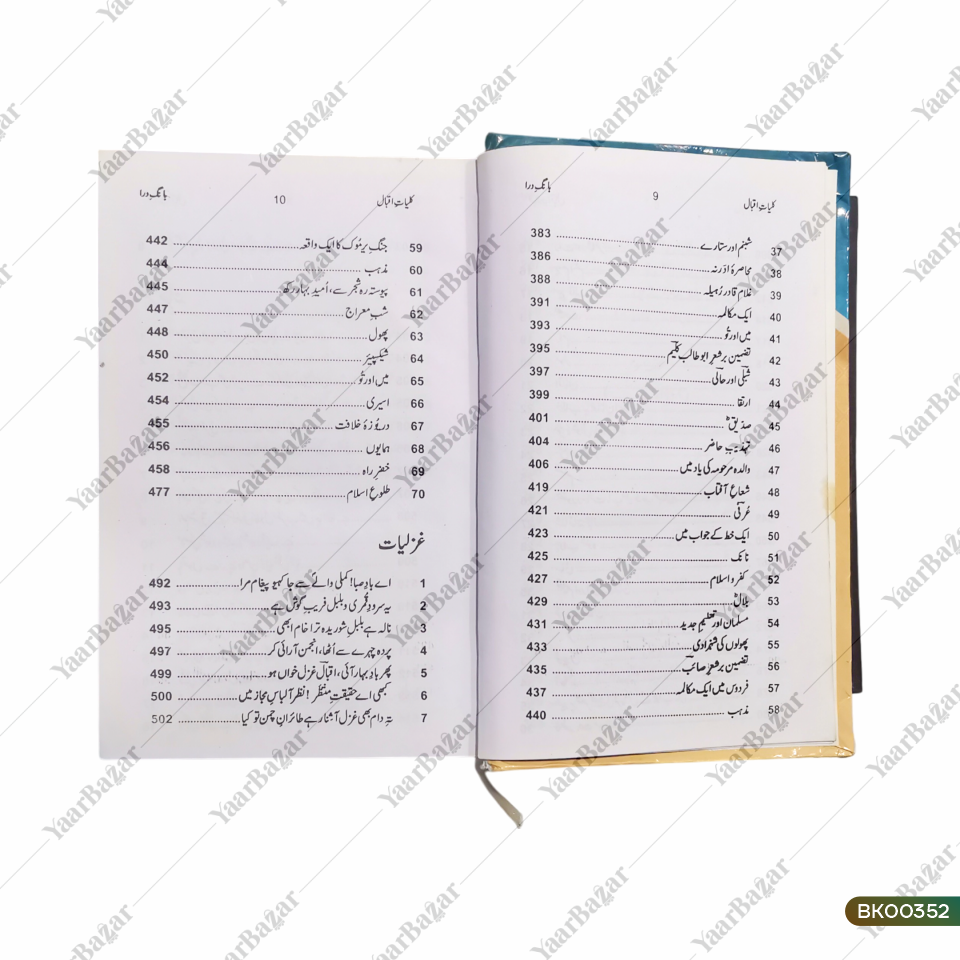 کلیاتِ اقبال 9 بانگِ درا
37 شبنم اور ستارے 383
38 محاصرۂ ادرنہ 386
39 غلام قادر رُہیلہ 388
40 ایک مکالمہ 391
41 میں اور تُو 393
42 تضمین بر شعرِ ابوطالب کلیم 395
43 شبلی اور حالی 397
44 ارتقا 399
45 صدیقؓ 401
46 تہذیبِ حاضر 404
47 والدہ مرحومہ کی یاد میں 406
48 شعاعِ آفتاب 419
49 عُرفی 421
50 ایک خط کے جواب میں 423
51 نانک 425
52 کفر و اسلام 427
53 بلالؓ 429
54 مسلمان اور تعلیمِ جدید 431
55 پھولوں کی شہزادی 433
56 تضمین بر شعرِ صائب 435
57 فردوس میں ایک مکالمہ 437
58 مذہب 440
کلیاتِ اقبال 10 بانگِ درا
59 جنگِ یرموک کا ایک واقعہ 442
60 مذہب 444
61 پیوستہ رہ شجر سے، اُمیدِ بہار رکھ 445
62 شبِ معراج 447
63 پھول 448
64 شیکسپیئر 450
65 میں اور تُو 452
66 اسیری 454
67 دریوزۂ خلافت 455
68 ہمایوں 456
69 خضرِ راہ 458
70 طلوعِ اسلام 477
غزلیات
1 اے بادِ صبا! کملی والے سے جا کہیو پیغام مرا 492
2 یہ سرودِ قُمری و بلبل فریبِ گوش ہے 493
3 نالہ ہے بلبلِ شوریدہ ترا خام ابھی 495
4 پردہ چہرے سے اُٹھا، انجمن آرائی کر 497
5 پھر بادِ بہار آئی، اقبال غزل خواں ہو 499
6 کبھی اے حقیقتِ منتظَر! نظر آ لباسِ مجاز میں 500
7 تہِ دام بھی غزل آشنا رہے طائرانِ چمن تو کیا 502
YaarBazar
BK00352